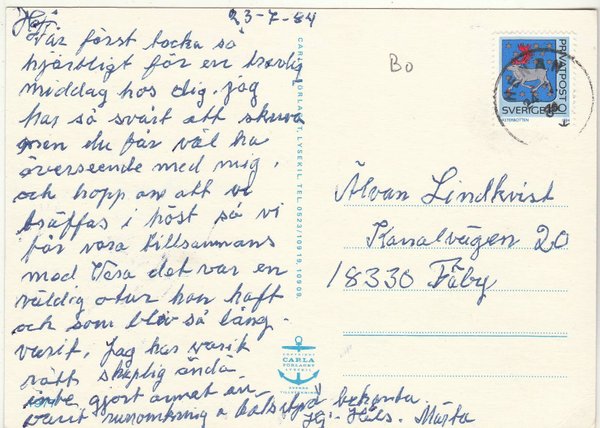 Hej 23-7-84
Får först tacka så
hjärtligt för en trevlig
middag hos dig. jag
har så svårt att skriva
men du får väl ha
överseende med mig,
och hopp om att vi
träffas i höst så vi
får vara tillsammans
med Vera det var en
väldig otur hon haft
och som blev så lång-
varit, Jag har varit
rätt skaplig ändå
inte gjort annat än
varit runomkring o hälsat på bekanta
Hj. Häls. Märta
Bo
Älvan Lindkvist
Kanalvägen 20
18330 Täby
CARLA FÖRLAGET, LYSEKIL TEL. 0523/10919, 10909.
COPYRIGHT
CARLA
FÖRLAGET
LYSEKIL
SVENSK
TILLVERKNING
PRIVATPOST
SVERIGE
VÄSTERBOTTEN